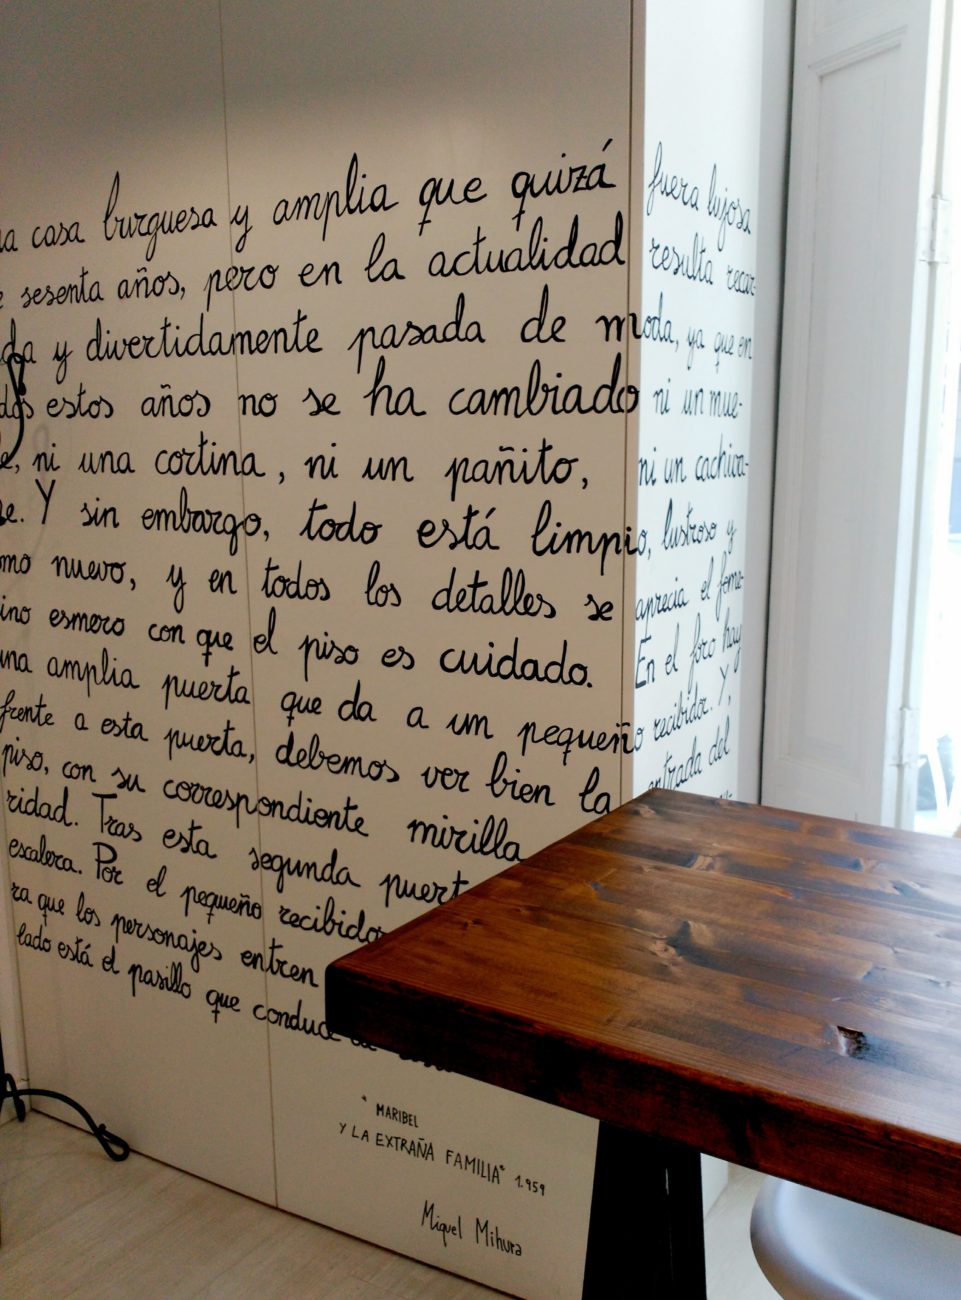 casa burguesa y amplia que quizá fuera lujosa
sesenta años, pero en la actualidad resulta recar-
da y divertidamente pasada de moda, ya que en
estos años no se ha cambiado ni un mue-
ni una cortina, ni un pañito, ni un cachiva-
Y sin embargo, todo está limpio, lustroso y
mo nuevo, y en todos los detalles se aprecia el feme-
ino esmero con que el piso es cuidado. En el foro hay
una amplia puerta que da a un pequeño recibidor. Y,
frente a esta puerta, debemos ver bien la entrada del
piso, con su correspondiente mirilla
ridad. Tras esta segunda puert
escalera. Por el pequeño recibido
ra que los personajes entren
lado está el pasillo que conduce
"MARIBEL
Y LA EXTRAÑA FAMILIA" 1.959
Miguel Mihura